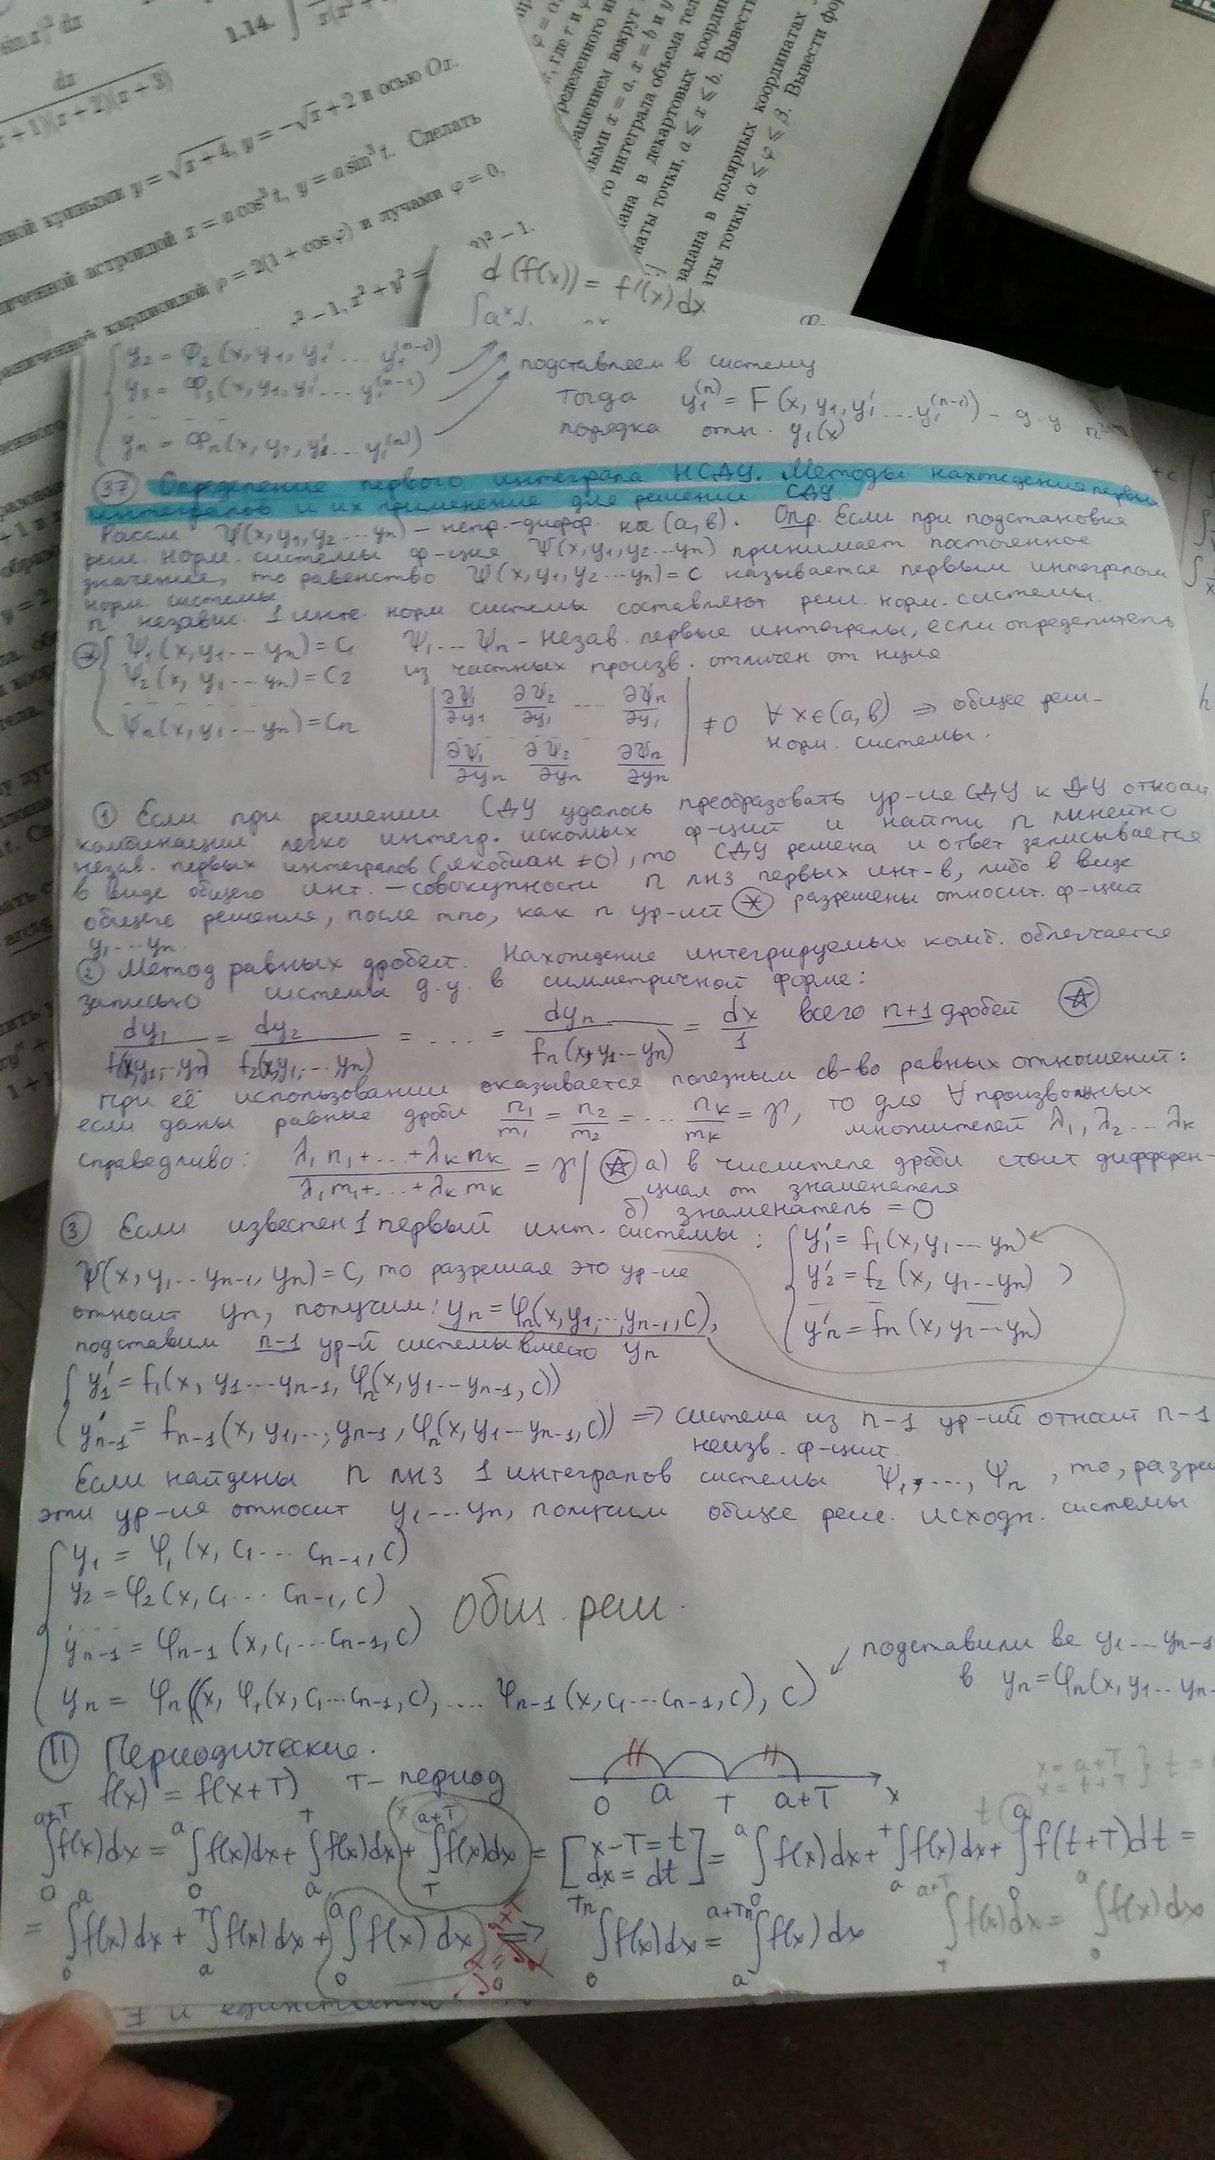 sin x)² dx
1.14.
dx
x + 1)(x + 2)(x + 3)
кривыми y = √x + 4, y = −√x + 2 и осью Ox.
астроидой x = a cos³ t, y = a sin³ t. Сделать
кардиоидой ρ = 2(1 + cos φ) и лучами φ = 0,
² − 1, x² + y² =
, где r и φ
вращением вокруг
x = a, x = b и y
го интеграла объема тел
в декартовых коорди
точки, a ⩽ x ⩽ b. Вывест
задана в полярных координатах
точки, α ⩽ φ ⩽ β. Вывести фор
)² − 1.
d(f(x)) = f'(x)dx
y₂ = Φ₂(x, y₁, y₁' ... y₁⁽ⁿ⁻¹⁾)
y₃ = Φ₃(x, y₁, y₁' ... y₁⁽ⁿ⁻¹⁾)
yₙ = Φₙ(x, y₁, y₁' ... y₁⁽ⁿ⁾)
подставляем в систему
Тогда y₁⁽ⁿ⁾ = F(x, y₁, y₁' ... y₁⁽ⁿ⁻¹⁾) – д-у
порядка отн. y₁(x)
37 Определение первого интеграла НСДУ. Методы нахождения первых
интегралов и их применение для решения СДУ.
Рассм Ψ(x, y₁, y₂ ... yₙ) – непр.-дифф. на (a, b). Опр. Если при подстановке
реш. норм. системы ф-ция Ψ(x, y₁, y₂ ... yₙ) принимает постоянное
значение, то равенство Ψ(x, y₁, y₂ ... yₙ) = C называется первым интегралом
норм системы
n независ. 1 инте. норм системы составляют реш. норм. системы.
* Ψ₁(x, y₁ ... yₙ) = C₁ Ψ₁ ... Ψₙ – незав. первые интегралы, если определитель
Ψ₂(x, y₁ ... yₙ) = C₂ из частных произв. отличен от нуля
Ψₙ(x, y₁ ... yₙ) = Cₙ
∂Ψ₁/∂y₁ ∂Ψ₂/∂y₁ ... ∂Ψₙ/∂y₁
∂Ψ₁/∂yₙ ∂Ψ₂/∂yₙ ∂Ψₙ/∂yₙ
≠ 0 ∀ x ∈ (a, b) ⇒ общее реш-
норм. системы.
① Если при решении СДУ удалось преобразовать ур-ие СДУ к ДУ относит
комбинации легко интегр. искомых ф-ций и найти n линейно
незав. первых интегралов (якобиан ≠ 0), то СДУ решена и ответ записывается
в виде общего инт. – совокупности n лнз первых инт-в, либо в виде
общего решения, после того, как n ур-ий * разрешены относит. ф-ций
y₁ ... yₙ.
② Метод равных дробей. Нахождение интегрируемых комб. облегчается
записью системы д.у. в симметричной форме:
dy₁/f₁(x, y₁, ..., yₙ) = dy₂/f₂(x, y₁, ..., yₙ) = ... = dyₙ/fₙ(x, y₁ ... yₙ) = dx/1 всего n+1 дробей ☆
При её использовании оказывается полезным св-во равных отношений:
если даны равные дроби n₁/m₁ = n₂/m₂ = ... nₖ/mₖ = γ, то для ∀ произвольных
множителей λ₁, λ₂ ... λₖ
справедливо: (λ₁n₁ + ... + λₖnₖ)/(λ₁m₁ + ... + λₖmₖ) = γ | ☆ а) в числителе дроби стоит дифферен-
циал от знаменателя
б) знаменатель = 0
③ Если известен 1 первый инт. системы: y₁' = f₁(x, y₁ ... yₙ)
Ψ(x, y₁ ... yₙ₋₁, yₙ) = C, то разрешая это ур-ие y₂' = f₂(x, y₁ ... yₙ)
относит yₙ, получим: yₙ = φₙ(x, y₁, ..., yₙ₋₁, C), yₙ' = fₙ(x, y₁ ... yₙ)
подставим n-1 ур-й системы вместо yₙ
y₁' = f₁(x, y₁ ... yₙ₋₁, φₙ(x, y₁ ... yₙ₋₁, C))
yₙ₋₁' = fₙ₋₁(x, y₁, ..., yₙ₋₁, φₙ(x, y₁ ... yₙ₋₁, C)) ⇒ система из n-1 ур-ий относит n-1
неизв. ф-ций.
Если найдены n лнз 1 интегралов системы Ψ₁, ..., Ψₙ, то, разре
эти ур-ия относит y₁ ... yₙ, получим общее реш. исходн. системы
y₁ = φ₁(x, C₁ ... Cₙ₋₁, C)
y₂ = φ₂(x, C₁ ... Cₙ₋₁, C)
Общ. реш.
yₙ₋₁ = φₙ₋₁(x, C₁ ... Cₙ₋₁, C)
подставили все y₁ ... yₙ₋₁
yₙ = φₙ(x, φ₁(x, C₁ ... Cₙ₋₁, C), ... φₙ₋₁(x, C₁ ... Cₙ₋₁, C), C)
в yₙ = φₙ(x, y₁ ... yₙ-
11 Периодические.
f(x) = f(x+T) T – период
0 a T a+T x
x = a+T
x = t+T } t =
∫₀ᵃ⁺ᵀ f(x)dx = ∫₀ᵃ f(x)dx + ∫ₐᵀ f(x)dx + ∫ᴛᵃ⁺ᵀ f(x)dx = [x−T=t dx=dt] = ∫₀ᵃ f(x)dx + ∫ₐᵀ f(x)dx + ∫₀ᵃ f(t+T)dt =
= ∫₀ᵃ f(x)dx + ∫ₐᵀ f(x)dx + ∫₀ᵃ f(x)dx ⇒ ∫₀ᵀⁿ f(x)dx = ∫ₐᵃ⁺ᵀⁿ f(x)dx ∫ᴛᵃ⁺ᵀ f(x)dx = ∫₀ᵃ f(x)dx